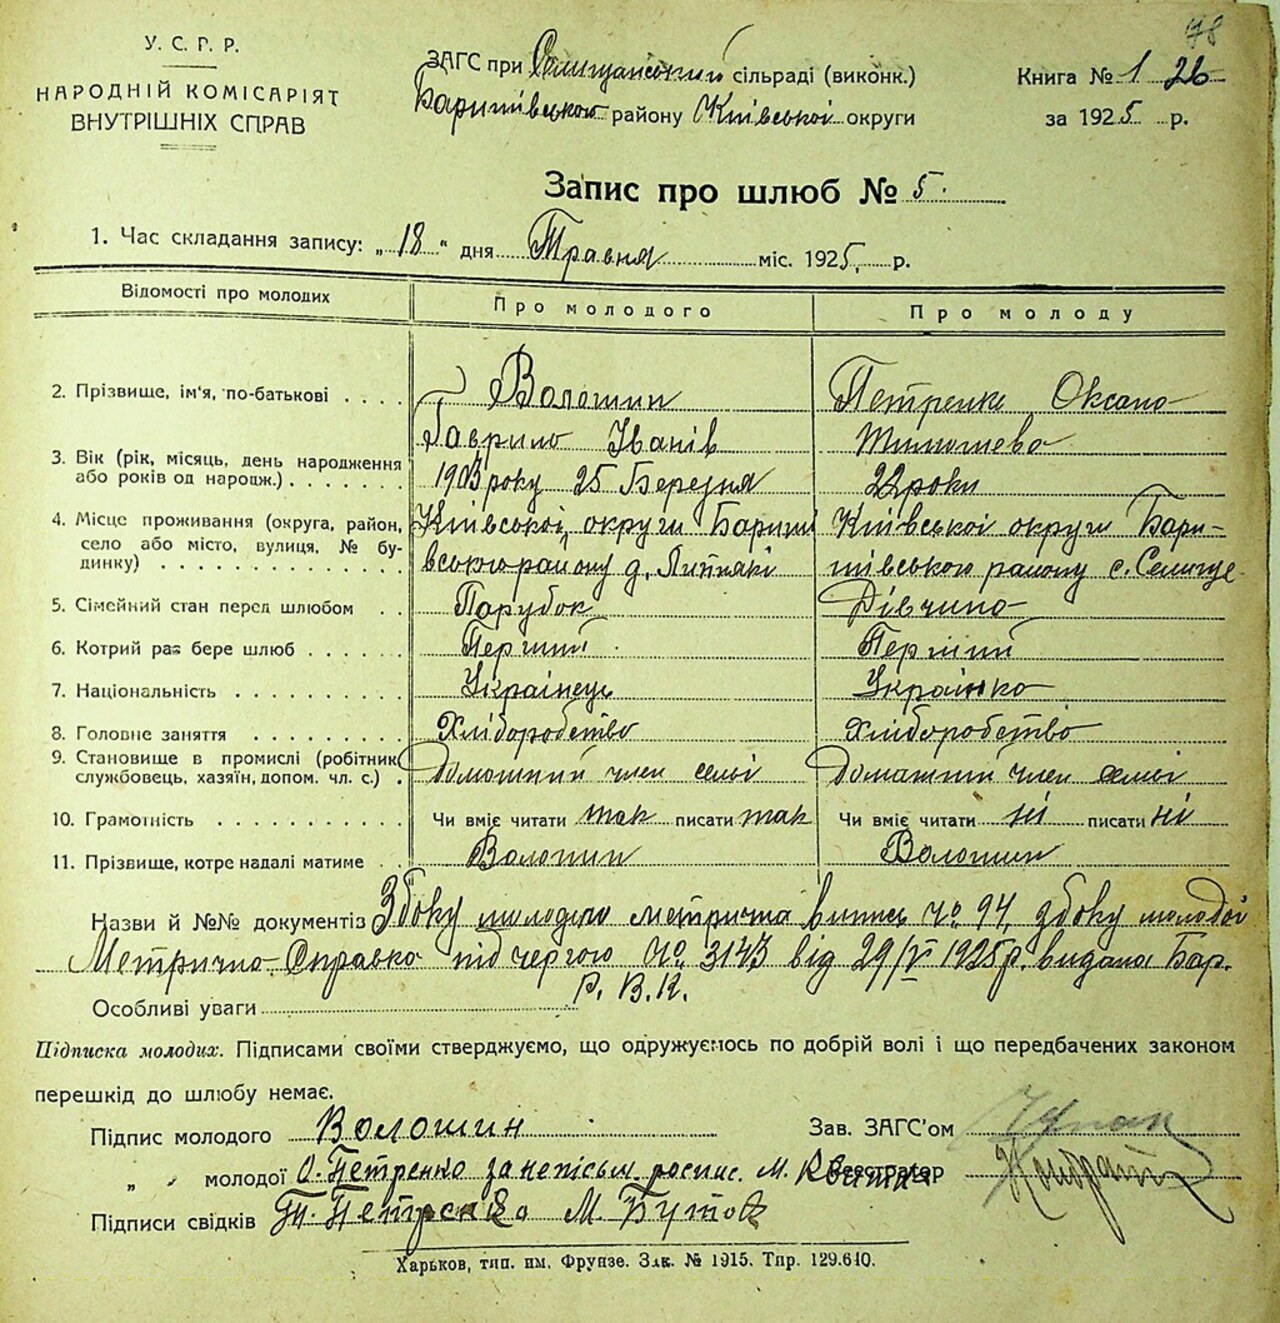 78
У. С. Р. Р.
НАРОДНІЙ КОМІСАРІЯТ
ВНУТРІШНІХ СПРАВ
ЗАГС при Селищанський сільраді (виконк.)
Баришівського району Київської округи
Книга № 1 26
за 1925 р.
Запис про шлюб № 5.
1. Час складання запису: „18“ дня Травня міс. 1925, р.
Відомості про молодих
Про молодого
Про молоду
2. Прізвище, ім'я, по-батькові
Волошин
Гаврило Іванів
Петренко Оксана
Тимошева
3. Вік (рік, місяць, день народження
або років од народж.)
1903 року 25 Березня
22 роки
4. Місце проживання (округа, район,
село або місто, вулиця, № бу-
динку)
Київської округи Бариші
вського району д.
Київської округи Бари-
шівського району с. Селище
5. Сімейний стан перед шлюбом
Парубок
Дівчина
6. Котрий раз бере шлюб
Перший
Перший
7. Національність
Українець
Українка
8. Головне заняття
Хліборобство
Хліборобство
9. Становище в промислі (робітник
службовець, хазяїн, допом. чл. с.)
Домашний член семї
Домашний член семьї
10. Грамотність
Чи вміє читати так писати так
Чи вміє читати ні писати ні
11. Прізвище, котре надалі матиме
Волошин
Волошин
Назви й №№ документів Збоку молодого метрична випись № 94, збоку молодої
Метрична Справка під чергою № 3143 від 29/IV 1925 р. видана Бар.
Р. В. К.
Особливі уваги
Підписка молодих. Підписами своїми стверджуємо, що одружуємось по добрій волі і що передбачених законом
перешкід до шлюбу немає.
Підпис молодого Волошин
„ „ молодої О. Петренко за непісьм. роспис. М.
Підписи свідків Т. Петренко М. Бутов
Зав. ЗАГС'ом
Реєстратор
Харьков, тип. им. Фрунзе. Зак. № 1915. Тир. 129.640.